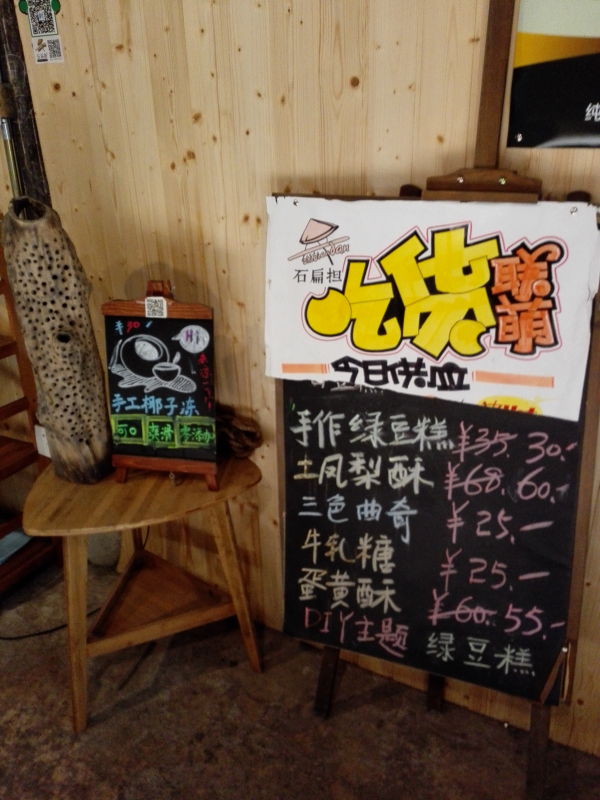 纯
石扁担
吃货联萌
今日供应
手作绿豆糕 ¥35. 30.-
土凤梨酥 ¥68. 60.-
三色曲奇 ¥25.-
牛乳糖 ¥25.-
蛋黄酥 ¥60. 55.-
DIY主题 绿豆糕
Hi
手工椰子冻
可口 爽滑 零添加